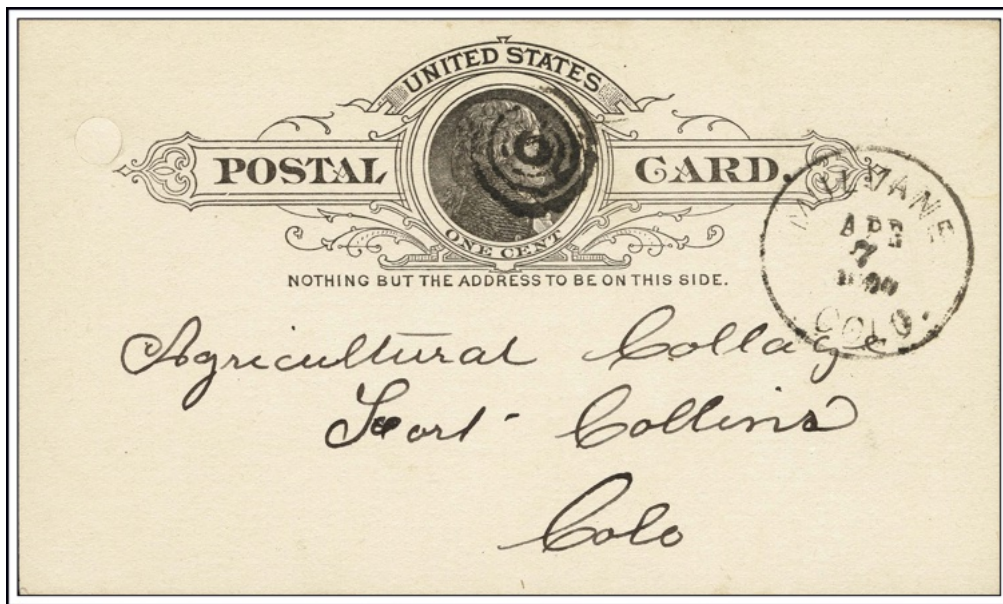 UNITED STATES
POSTAL CARD.
ONE CENT
NOTHING BUT THE ADDRESS TO BE ON THIS SIDE.
MULVANE
APR
7
COLO.
Agricultural Collage
Fort Collins
Colo